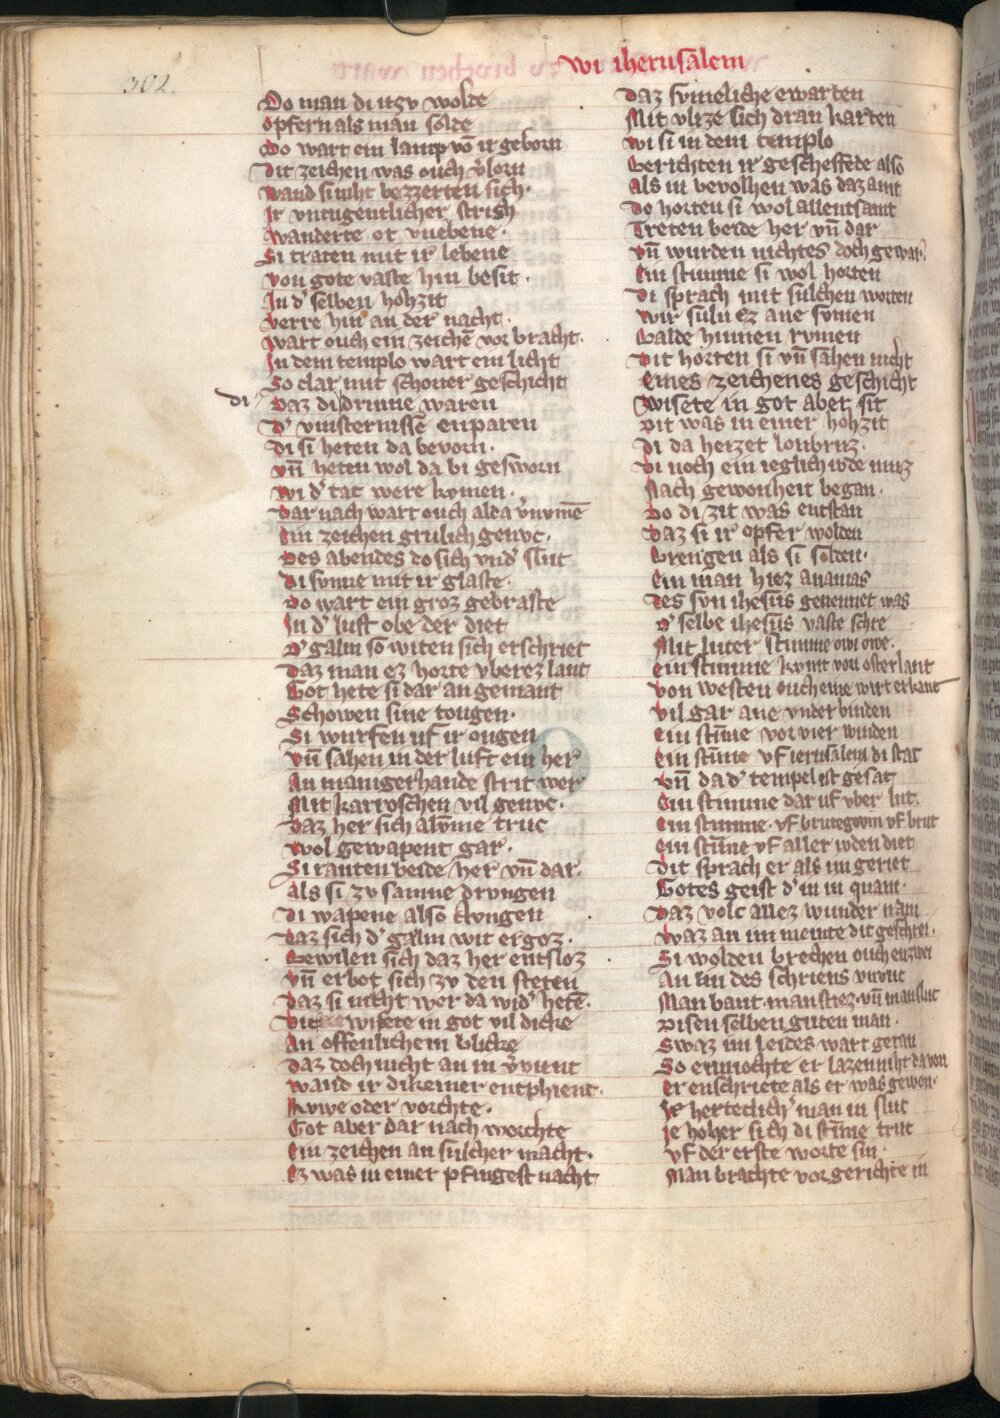 302.
wi iherusalem
Do man di itzv wolde
opfern als man solde
Do wart ein lamp vō ir geborn
Dit zeichen was ouch v̾lorn
wand si niht bezzerten sich.
Ir vntugentlicher strich
wanderte ot vnebene.
Si traten mit ir lebene
von gote vaste hin besit.
In d̾ selben hohzit
verre hin an der nacht.
wart ouch ein zeichē vor bracht.
In dem templo wart ein licht
So clar mit schoner geschicht
di
Daz di drinne waren
d̾ vinsternisse enparen
di si heten da bevorn.
vn̄ heten wol da bi gesworn
wi d̾ tac were kvmen.
Dar nach wart ouch alda v̾nvmē
Ein zeichen grulich genvc.
Des abendes do sich vnd̾ sluc
di svnne mit ir glaste.
Do wart ein groz gebraste
In d̾ luft obe der diet
d̾ galm so witen sich erschriet
Daz man ez horte vberez lant
Got hete si dar an gemant
Schowen sine tougen.
Si wurfen uf ir ougen
vn̄ sahen in der luft ein her
An maniger hande strit wer
Mit karroschen vil genvc.
Daz her sich alvme truc
wol gewapent gar.
Si ranten beide her vn̄ dar.
als si zv samne drvngen
di wapene also clvngen
Daz sich d̾ galm wit ergoz.
Bewilen sich daz her entsloz
vn̄ erbot sich zv den steten
Daz si nicht wer da wid̾ hetē.
Dit wisete in got vil dicke
An offenlichem blicke
daz doch nicht an in v̾vienc
wand ir dikeiner entphienc.
Rvwe oder vorchte.
Got aber dar nach worchte
Ein zeichen an sulcher macht.
Ez was in einer pfingest nacht
daz svmeliche ewarten
Mit vlize sich dran karten
wi si in dem templo
Berichten ir gescheffede also
Als in bevolhen was daz amt
Do horten si wol allentsamt
Treten beide her vn̄ dar
vn̄ wurden nichtes doch gewar.
Ein stimme si wol horten
Di sprach mit sulchen worten
wir suln ez ane svmen
Balde hinnen rvmen
Dit horten si vn̄ sahen nicht
Eines zeichenes geschicht
wisete in got aber sit
Dit was in einer hohzit
Di da heizet loubruz.
Di noch ein ieglich ivde muz
Nach gewonheit began.
Do di zit was entstan
Daz si ir opfer wolden
Brengen als si solden.
Ein man hiez ananias
Des svn ihesus genennet was
d̾ selbe ihesus vaste schre
Mit luter stimme owi owe.
Ein stimme kvmt von osterlant
von westen ouch eine wirt erkant
vil gar ane vnderbinden
Ein stīme vor vier winden
Ein stīme vf ierusalem di stat
vn̄ da d̾ tempel ist gesat
Ein stimme dar uf vber lut.
Ein stimme vf brutegovm vf brut
Ein stīme vf aller ivden diet
Dit sprach er als im geriet
Gotes geist d̾ in in quam.
Daz volc allez wunder nam
waz an im meinte dit geschrei.
Si wolden brechen ouch enzwei
An im des schriens vnvuc
Man bant man stiez vn̄ man sluc
Disen selben guten man.
Swaz im leides wart getan
So enmochte er lazen niht da von
Er enschriete als er was gewon.
Ie herteclich̾ man in sluc
Ie hoher sich di stīme truc
vf der erste worte sin.
Man brachte vor gerichte in